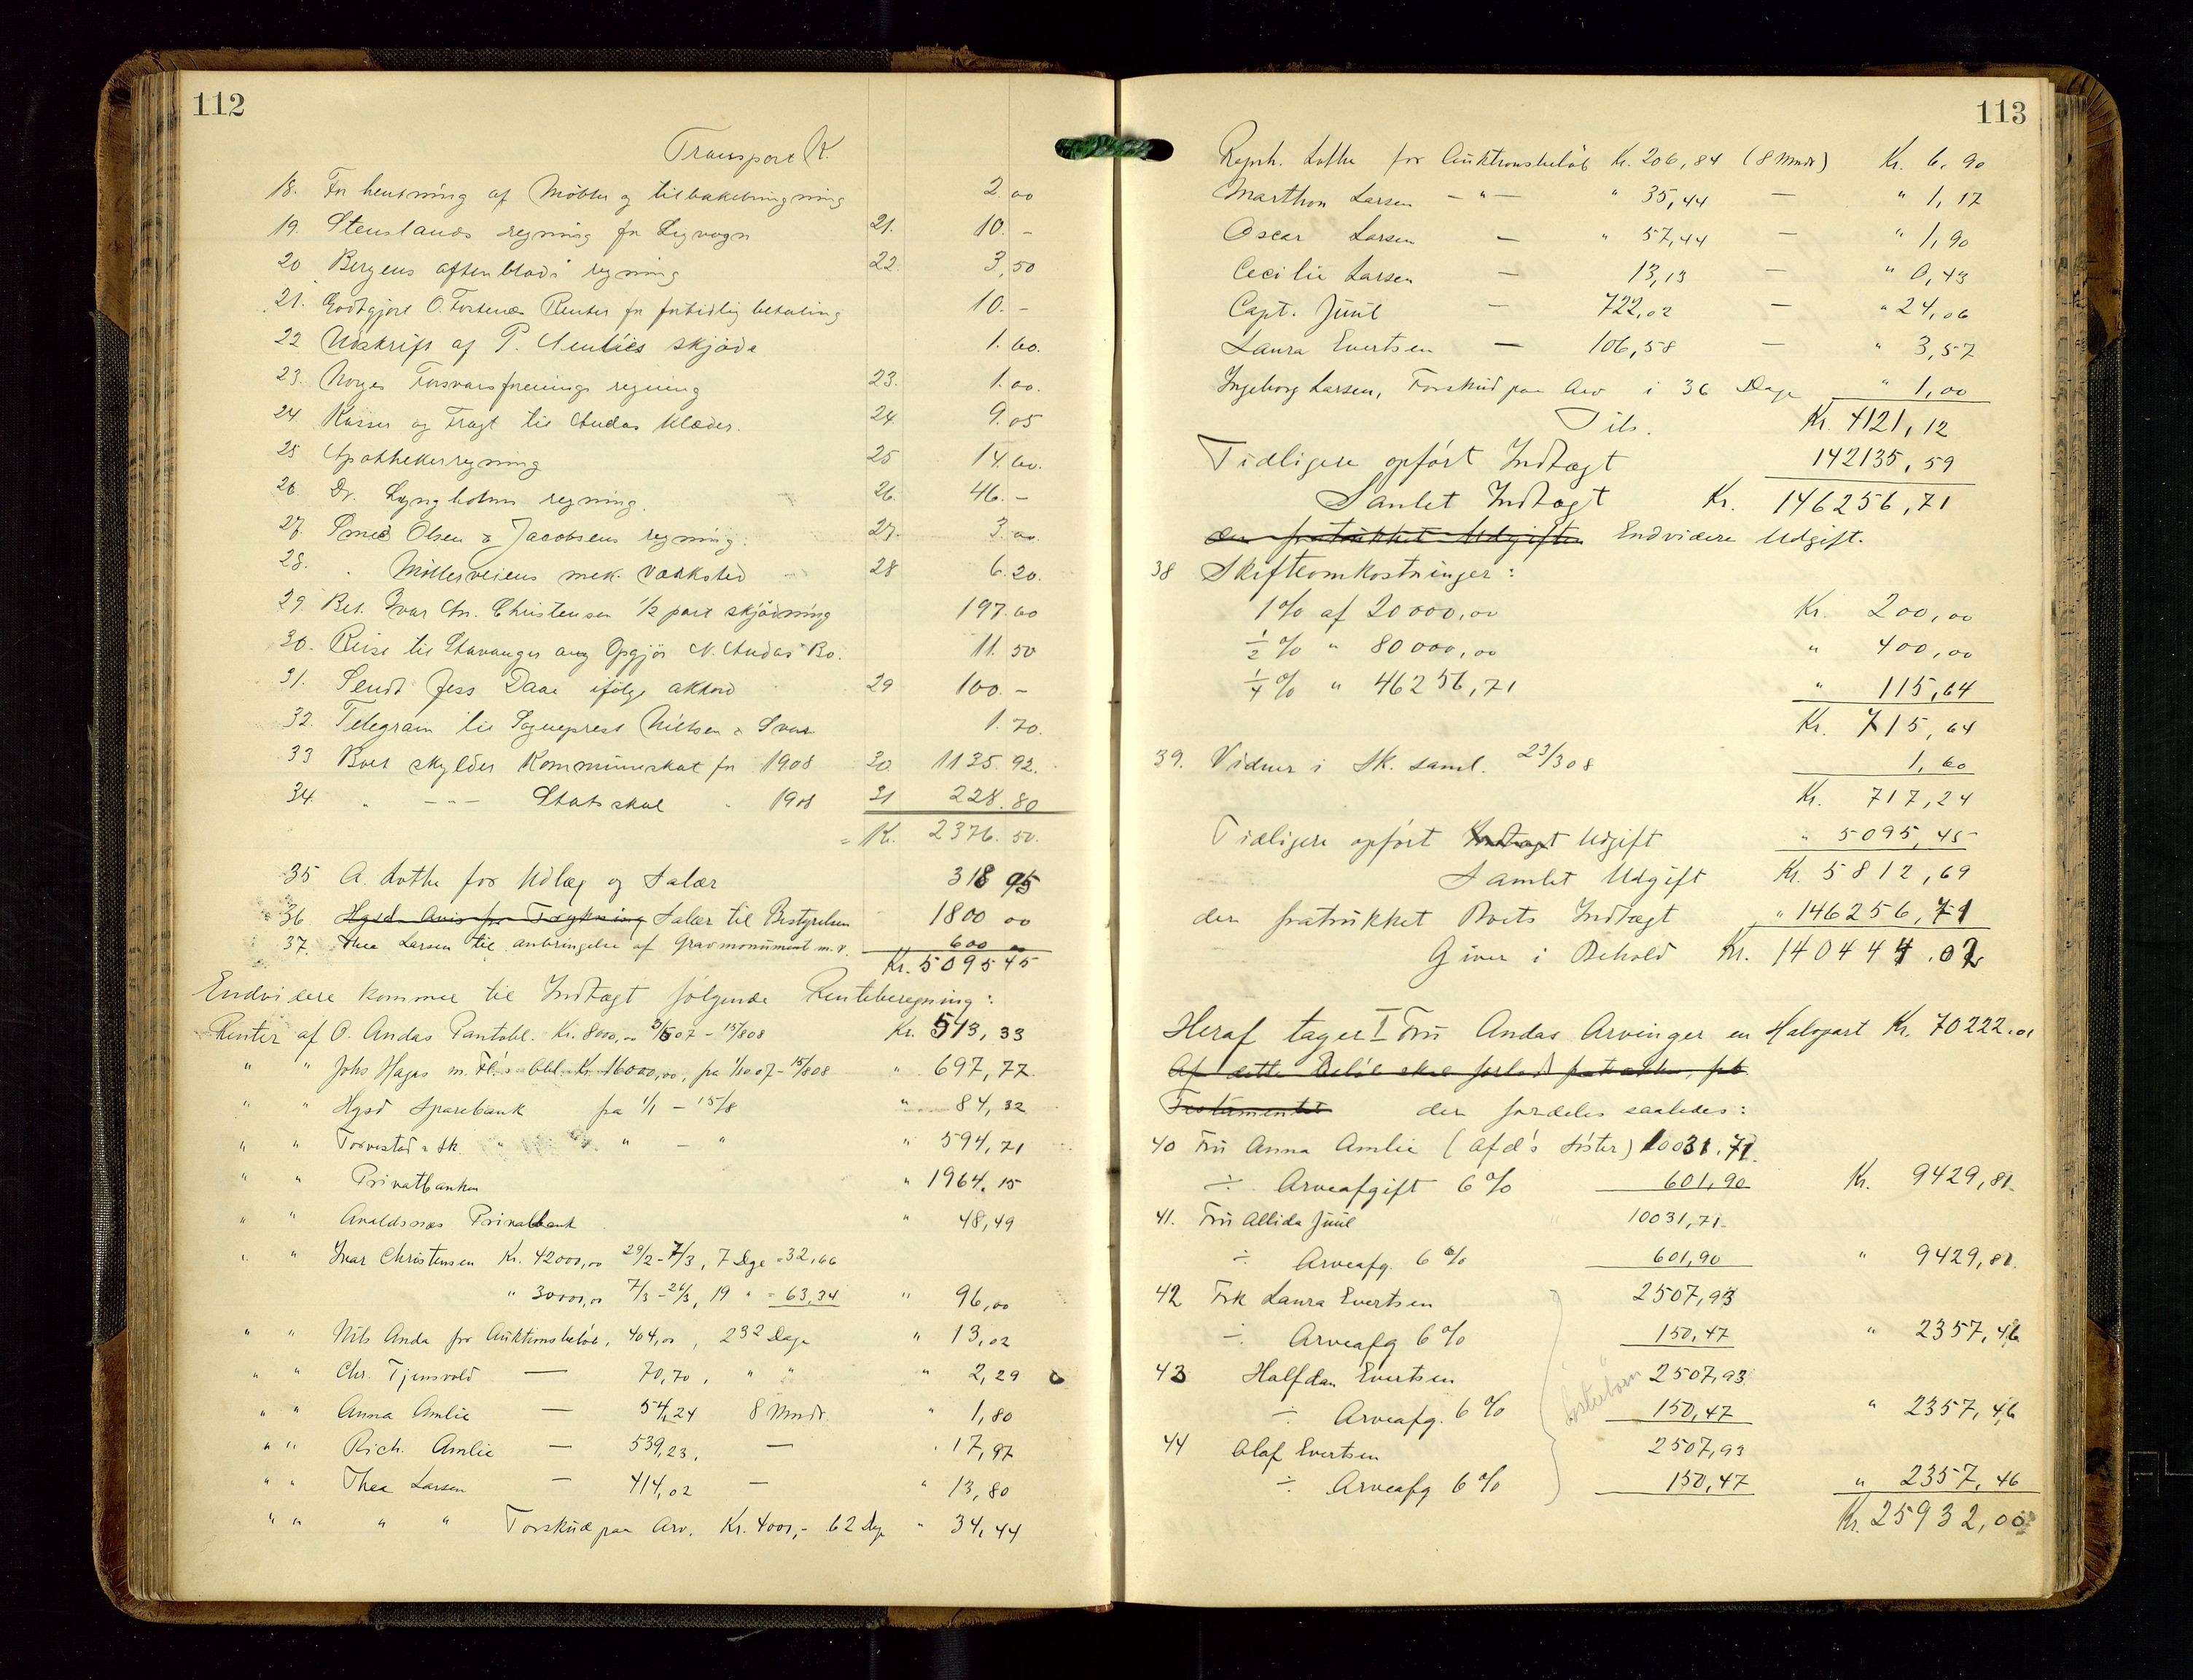 112
Transport K.
18. For hentning af Møbler og tilbakebringning 2.00
19. Stenslands regning for Ligvogn 21. 10.-
20 Bergens aftenblads regning 22. 3,50
21. Godtgjort O. Fosten Renter for fortidlig betaling 10.-
22 Udskrift af P. skjøde 1.60.
23. Norges Forsvarsforenings regning 23. 1.00.
24 Kasser og Fragt til Andas Klæder. 24. 9.05
25 Apothekerregning 25 14.60.
26 Dr. Lyngholms regning. 26. 46.-
27. Smed Olsen & Jacobsens regning. 27. 3.00.
28. " Møllerveiens mek. Værksted 28 6.20.
29. Bet. Ivar Chr. Christensen 1/2 part skjødning 197.60
30. Reise til Stavanger ang Opgjør N. Andas Bo. 11.50
31. Sendt Jess Daae ifølge akkord 29 100.-
32. Telegram til Sogneprest Nielsen & Svar 1.70.
33 Boet skylder Kommuneskat for 1908 30. 1135.92.
34. " --- Statsskat " 1908 31 228.80
= K. 2376.50.
35 A. Lothe for Udlæg og Salær 318 95
36. Hgsd. Avis for Trykning Salær til Bestyrelsen 1800 00
37. Thea Larsen til anbringelse af Gravmonument m.v. 600 00
Kr. 5095 45
Endvidere kommer til Indtægt følgende Renteberegning:
Renter af O. Andas Pantobl. Kr. 8000,00 3/507 - 15/808 Kr. 513,33
" " Johs Hagas m. Fl's Obl. Kr. 16000,00, fra 1/1007 - 15/808 " 697,77
" " Hgsd Sparebank fra 1/1 - 15/8 " 84,32
" " Torvestad & Sk. " " - " " 594,71
" " Privatbanken " 1964.15
" " Avaldsnæs Privatbank " 48,49
" " Ivar Christensen Kr. 42000,00 29/2 - 7/3, 7 Dge = 32,66
" 30000,00 7/3 - 26/3, 19 " = 63,34 " 96,00
" " Nils Anda for Auktionsbeløb, 404,00, 232 Dage " 13,02
" " Chr. Tjensvold — 70,70, " " " 2,29
" " Anna Amlie — 54,24 8 Mndr. " 1,80
" " Rich. Amlie — 539,23, — " 17,97
" " Thea Larsen — 414,02 — " 13,80
" " " " Forskud paa Arv. Kr. 4000,- 62 Dge " 34,44
113
Reprh. Lothe for Auktionsbeløb Kr. 206,84 (8 Mndr) Kr. 6.90
Marthon Larsen - " - " 35,44 — " 1,17
Oscar Larsen — " 57,44 — " 1,90
Cecilie Larsen — 13,13 — " 0,43
Capt. Juul — 722,02 — " 24,06
Laura Evertsen — 106,58 — " 3,57
Ingeborg Larsen, Forskud paa Arv i 36 Dage " 1,00
Tils. Kr. 4121,12
Tidligere opført Indtægt 142135,59
Samlet Indtægt Kr. 146256,71
der fratrukket Udgifter Endvidere Udgift.
38 Skifteomkostninger:
1% af 20000,00 Kr. 200,00
1/2 % " 80000,00 " 400,00
1/4 % " 46256,71 " 115,64
Kr. 715,64
39. Vidner i Sk. saml. 23/308 1,60
Kr. 717,24
Tidligere opført Indtægt Udgift " 5095,45
Samlet Udgift Kr. 5812,69
der fratrukket Boets Indtægt " 146256,71
Giver i Behold Kr. 140444.02
Heraf tager I Fru Andas Arvinger en Halvpart Kr. 70222.01
Af dette Beløb skal forlods
Testamentet der fordeles saaledes:
40 Fru Anna Amlie (afd's søster) 10031.71.
÷ Arveafgift 6% 601,90 Kr. 9429,81
41. Fru Allida Juul 10031,71
÷ Arveafg. 6% 601,90 " 9429,81.
42 Frk Laura Evertsen 2507,93
÷ Arveafg 6% 150,47 " 2357,46
43 Halfdan Evertsen 2507,93
÷ Arveafg. 6% 150,47 " 2357,46
Søsterbørn
44 Olaf Evertsen 2507,93
÷ Arveafg 6% 150,47 " 2357,46
Kr. 25932,00